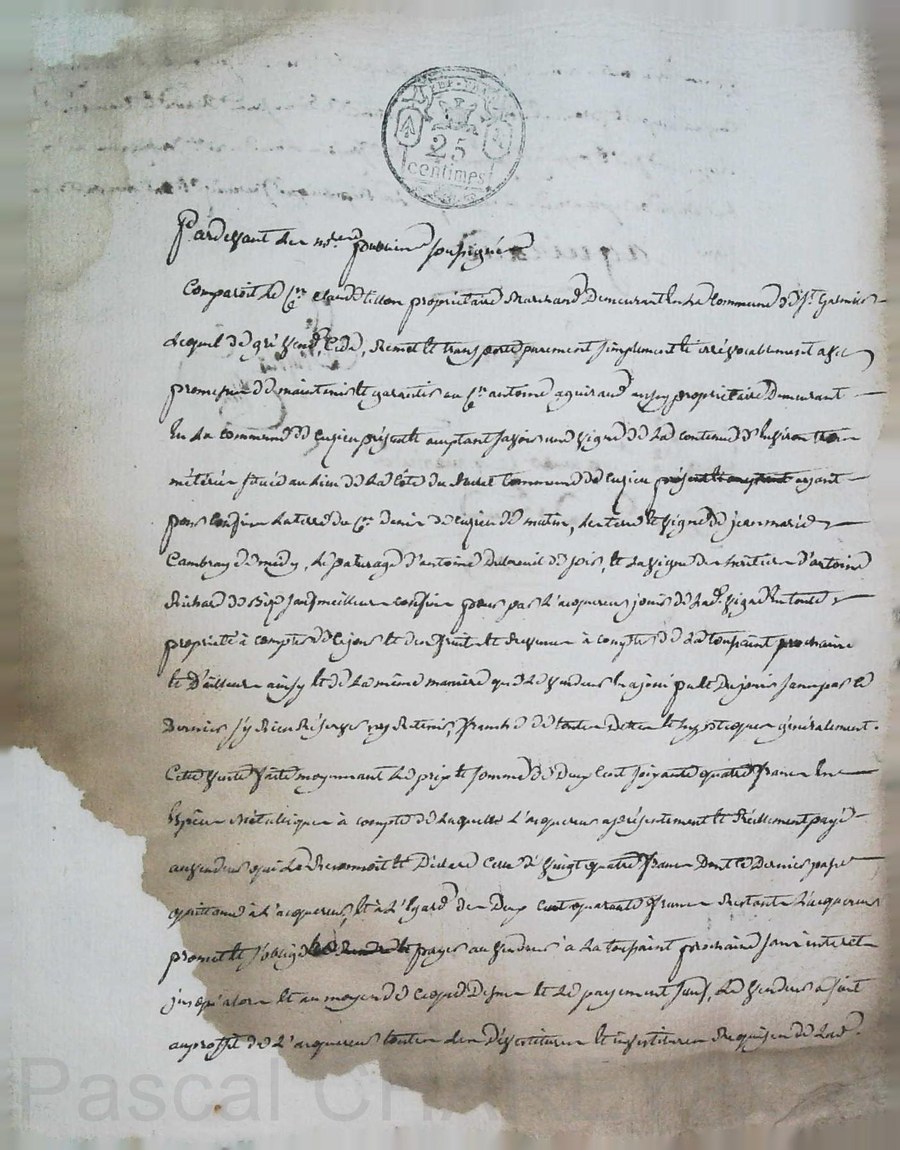 REP. FRA.
25
centimes
Pardevant les no.res publics soussignés
Comparoit le C.en Claude tillon propriétaire Marchand Demeurant En la Commune de S.t Galmier
Lequel de gré vend, Cede, Remet et transporte purement simplement et irrévocablement avec
promesse de maintenir et garantir au C.en antoine aguiraud aussy propriétaire Demeurant
En la commune de Cuzieu présent et acceptant savoir une vigne de la contenue d'Environ trois
métériés située au lieu de la Côte du Commune de Cuzieu présent et acceptant ayant
pour Confins la terre du C.en Denis de Cuzieu de matin, les terre et vigne de jean marie
Cambray de midy, le paturage d'antoine de soir, et la vigne des heritiers d'antoine
Richard de Bize sauf meilleurs Confins pour par l'acquereur jouir de lad. vigne En toute
propriété à compter de ce jour et des fruits et revenus à compter de la toussaint prochaine
et D'ailleurs ainsy et de la même manière que le vendeur En a joui pu et Du jouir sans par ce
Dernier s'y Rien Réserver ny Retenir, franche de toutes Dettes et hypotecques généralement.
Cette vente faite moyennant le prix et somme de Deux Cent soixante quatre francs En
Espèces Métalliques à compte de laquelle L'acquereur a présentement et Réellement payé
au vendeur qui Le Reconnoit et Déclare Celle de vingt quatre francs Dont ce Dernier passe
quittance à L'acquereur, et à L'Egard des Deux Cent quarante francs Restants L'acquereur
promet et s'oblige payer au vendeur à La toussaint prochaine sans interet
jusqu'alors et au moyen de ce que Dessus et Le payement sauf, Le vendeur a fait
au proffit de L'acquereur toutes Les Dévestitures et investitures Requises de Lad.
Pascal